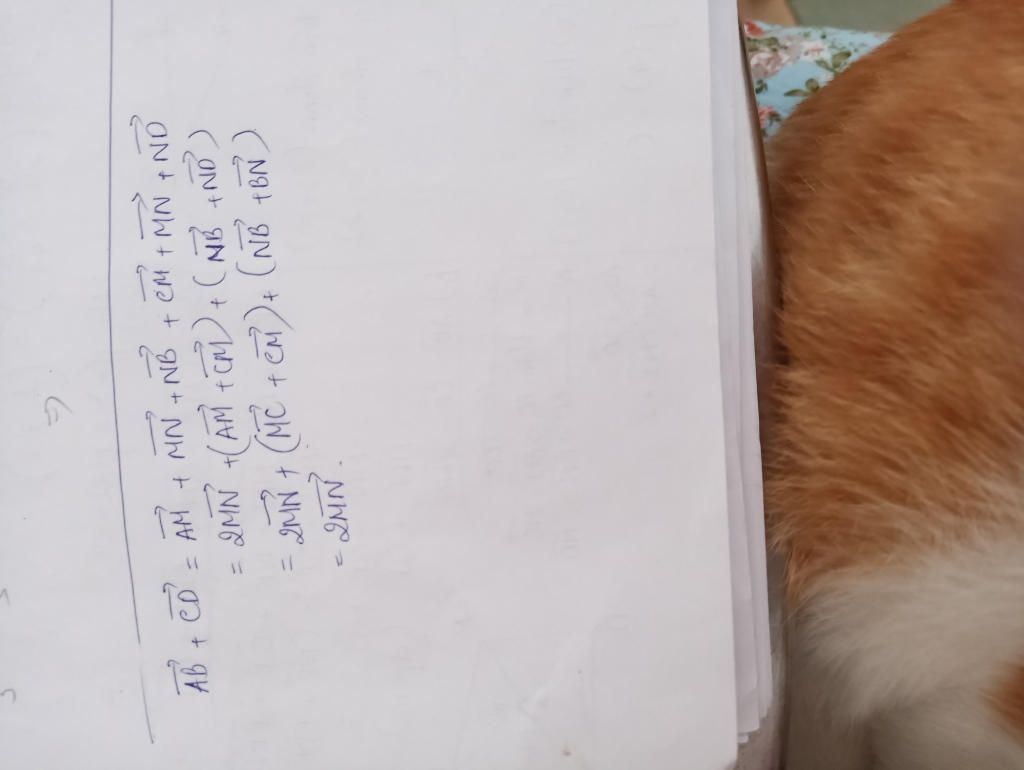 $\overrightarrow{AB} + \overrightarrow{CD} = \overrightarrow{AM} + \overrightarrow{MN} + \overrightarrow{NB} + \overrightarrow{CM} + \overrightarrow{MN} + \overrightarrow{ND}$
$= 2\overrightarrow{MN} + (\overrightarrow{AM} + \overrightarrow{CM}) + (\overrightarrow{NB} + \overrightarrow{ND})$
$= 2\overrightarrow{MN} + (\overrightarrow{MC} + \overrightarrow{CM}) + (\overrightarrow{NB} + \overrightarrow{BN})$
$= 2\overrightarrow{MN}.$